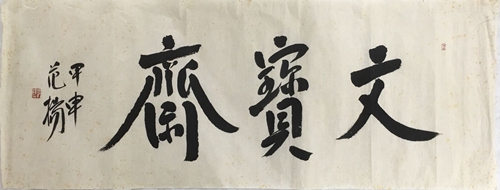 文寳齋
甲申
范揚